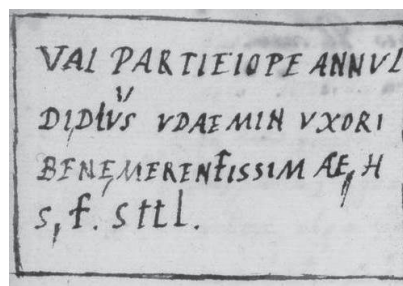 VAL PARTIEIOPE ANNVL
DIDIVS VDAEMIN VXORI
BENEMERENTISSIMAE, H
s, f. s t t l.